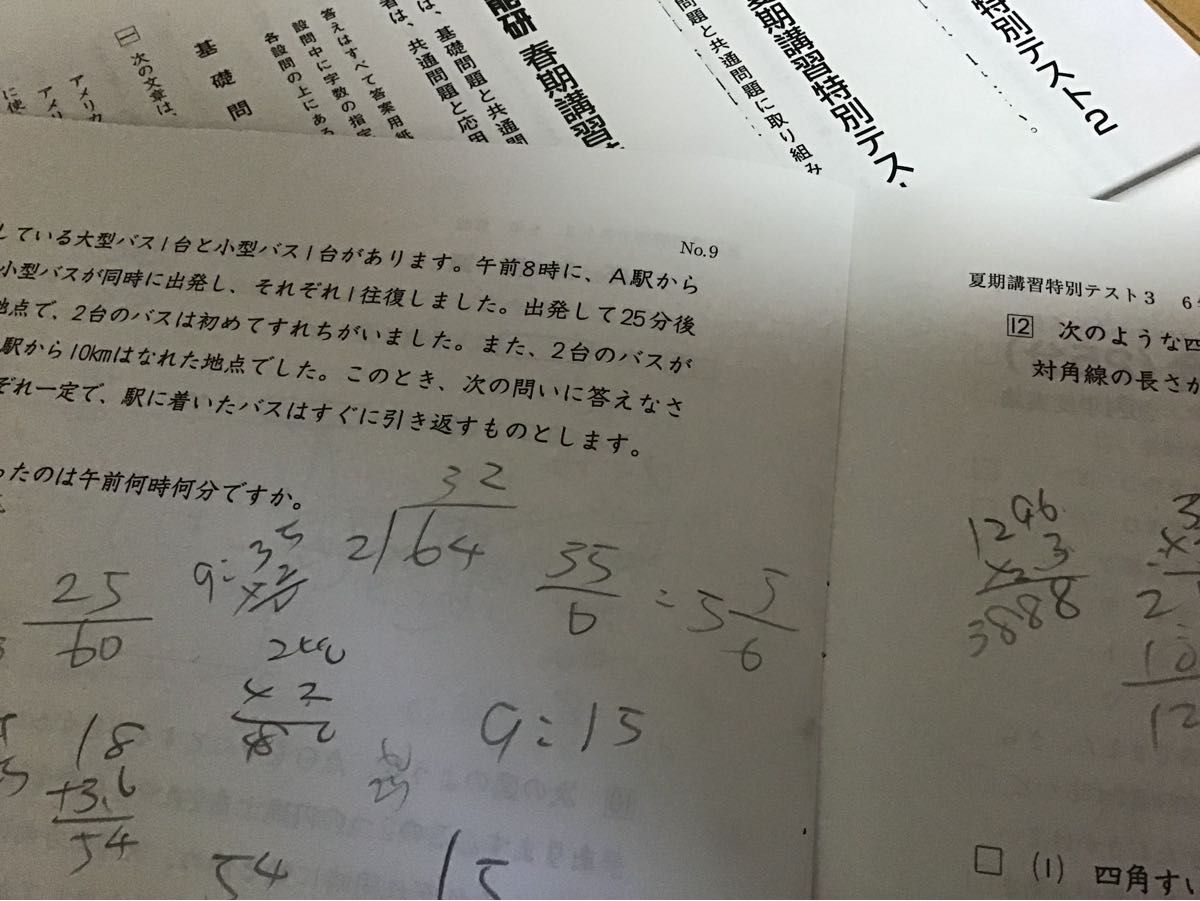 特別テスト2
期講習特別テス
問題と共通問題に取り組み
能研 春期講習
は、基礎問題と共通問
者は、共通問題と応用
答えはすべて答案用紙
設問中に字数の指定
各設問の上にある
基礎問
一 次の文章は、
アメリカ
アメリ
に使
No.9
している大型バス1台と小型バス1台があります。午前8時に、A駅から
小型バスが同時に出発し、それぞれ1往復しました。出発して25分後
地点で、2台のバスは初めてすれちがいました。また、2台のバスが
駅から10kmはなれた地点でした。このとき、次の問いに答えなさ
ぞれ一定で、駅に着いたバスはすぐに引き返すものとします。
ったのは午前何時何分ですか。
32
2)64
25
60
35
6
=5
5
6
9:15
18
+3.6
54
54
15
夏期講習特別テスト3 6
12 次のような四
対角線の長さが
1296
3
3888
□ (1) 四角すい